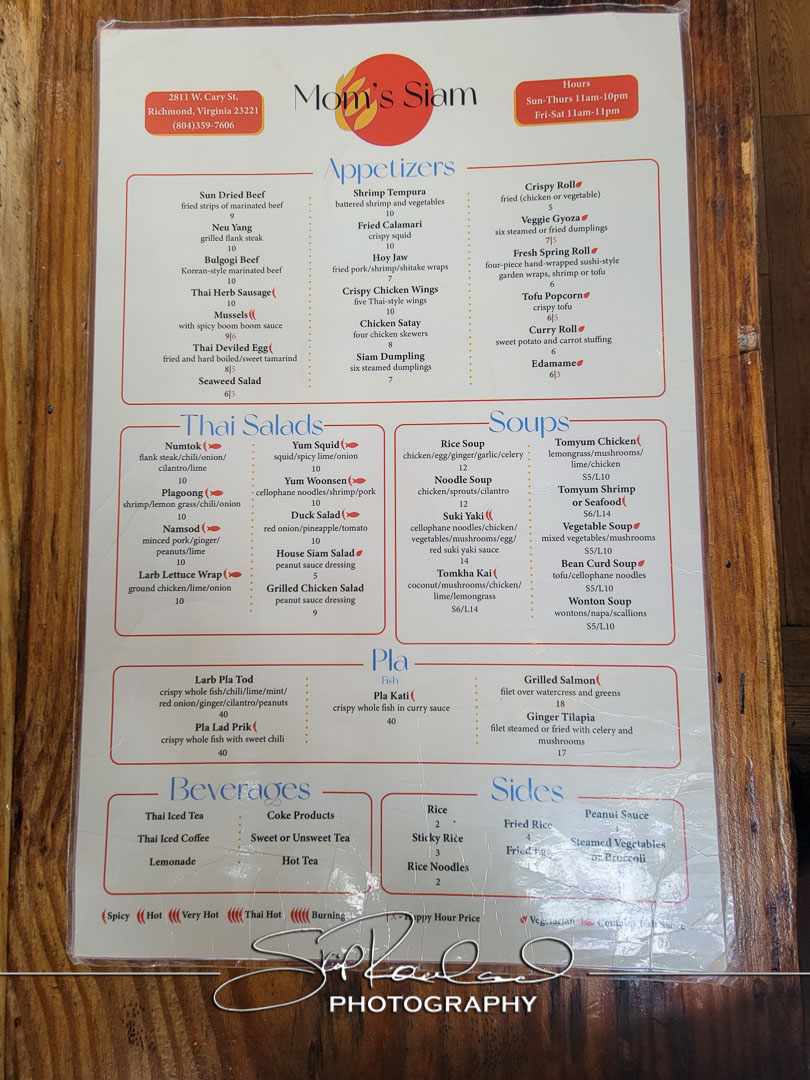 2811 W. Cary St,
Richmond, Virginia 23221
(804)359-7606
Mom's Siam
Hours
Sun-Thurs 11am-10pm
Fri-Sat 11am-11pm
Appetizers
Sun Dried Beef
fried strips of marinated beef
9
Neu Yang
grilled flank steak
10
Bulgogi Beef
Korean-style marinated beef
10
Thai Herb Sausage
10
Mussels
with spicy boom boom sauce
9|6
Thai Deviled Egg
fried and hard boiled/sweet tamarind
8|5
Seaweed Salad
6|3
Shrimp Tempura
battered shrimp and vegetables
10
Fried Calamari
crispy squid
10
Hoy Jaw
fried pork/shrimp/shitake wraps
7
Crispy Chicken Wings
five Thai-style wings
10
Chicken Satay
four chicken skewers
8
Siam Dumpling
six steamed dumplings
7
Crispy Roll
fried (chicken or vegetable)
5
Veggie Gyoza
six steamed or fried dumplings
7|5
Fresh Spring Roll
four-piece hand-wrapped sushi-style
garden wraps, shrimp or tofu
6
Tofu Popcorn
crispy tofu
6|5
Curry Roll
sweet potato and carrot stuffing
6
Edamame
6|3
Thai Salads
Numtok
flank steak/chili/onion/
cilantro/lime
10
Plagoong
shrimp/lemon grass/chili/onion
10
Namsod
minced pork/ginger/
peanuts/lime
10
Larb Lettuce Wrap
ground chicken/lime/onion
10
Yum Squid
squid/spicy lime/onion
10
Yum Woonsen
cellophane noodles/shrimp/pork
10
Duck Salad
red onion/pineapple/tomato
10
House Siam Salad
peanut sauce dressing
5
Grilled Chicken Salad
peanut sauce dressing
9
Soups
Rice Soup
chicken/egg/ginger/garlic/celery
12
Noodle Soup
chicken/sprouts/cilantro
12
Suki Yaki
cellophane noodles/chicken/
vegetables/mushrooms/egg/
red suki yaki sauce
14
Tomkha Kai
coconut/mushrooms/chicken/
lime/lemongrass
S6/L14
Tomyum Chicken
lemongrass/mushrooms/
lime/chicken
S5/L10
Tomyum Shrimp
or Seafood
S6/L14
Vegetable Soup
mixed vegetables/mushrooms
S5/L10
Bean Curd Soup
tofu/cellophane noodles
S5/L10
Wonton Soup
wontons/napa/scallions
S5/L10
Pla
Fish
Larb Pla Tod
crispy whole fish/chili/lime/mint/
red onion/ginger/cilantro/peanuts
40
Pla Lad Prik
crispy whole fish with sweet chili
40
Pla Kati
crispy whole fish in curry sauce
40
Grilled Salmon
filet over watercress and greens
18
Ginger Tilapia
filet steamed or fried with celery and
mushrooms
17
Beverages
Thai Iced Tea
Thai Iced Coffee
Lemonade
Coke Products
Sweet or Unsweet Tea
Hot Tea
Sides
Rice
2
Sticky Rice
3
Rice Noodles
2
Fried Rice
4
Fried Egg
Peanut Sauce
1
Steamed Vegetables
or Broccoli
Spicy Hot Very Hot Thai Hot Burning
|X - Happy Hour Price
Vegetarian Contains Fish Sauce
PHOTOGRAPHY